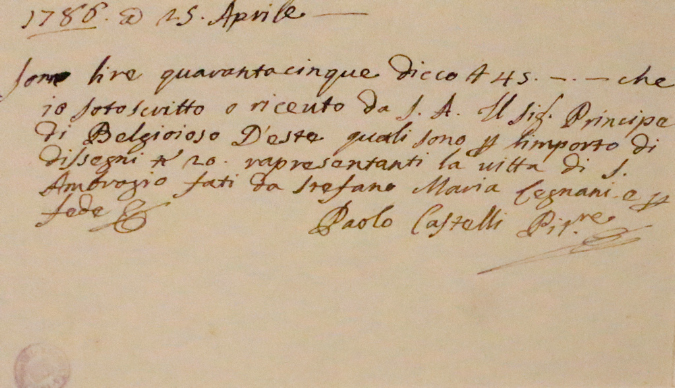 1786. a 25. Aprile
Sono lire quarantacinque dicco £ 45. -. - che
io sotoscritto o riceuto da S. A. Il Sig.r Principe
di Belgioioso D'este quali sono p l'importo di
dissegni n.º 20. rapresentanti la vitta di S.
Ambrogio fati da Stefano Maria Legnani e p
fede
Paolo Castelli Pit.re